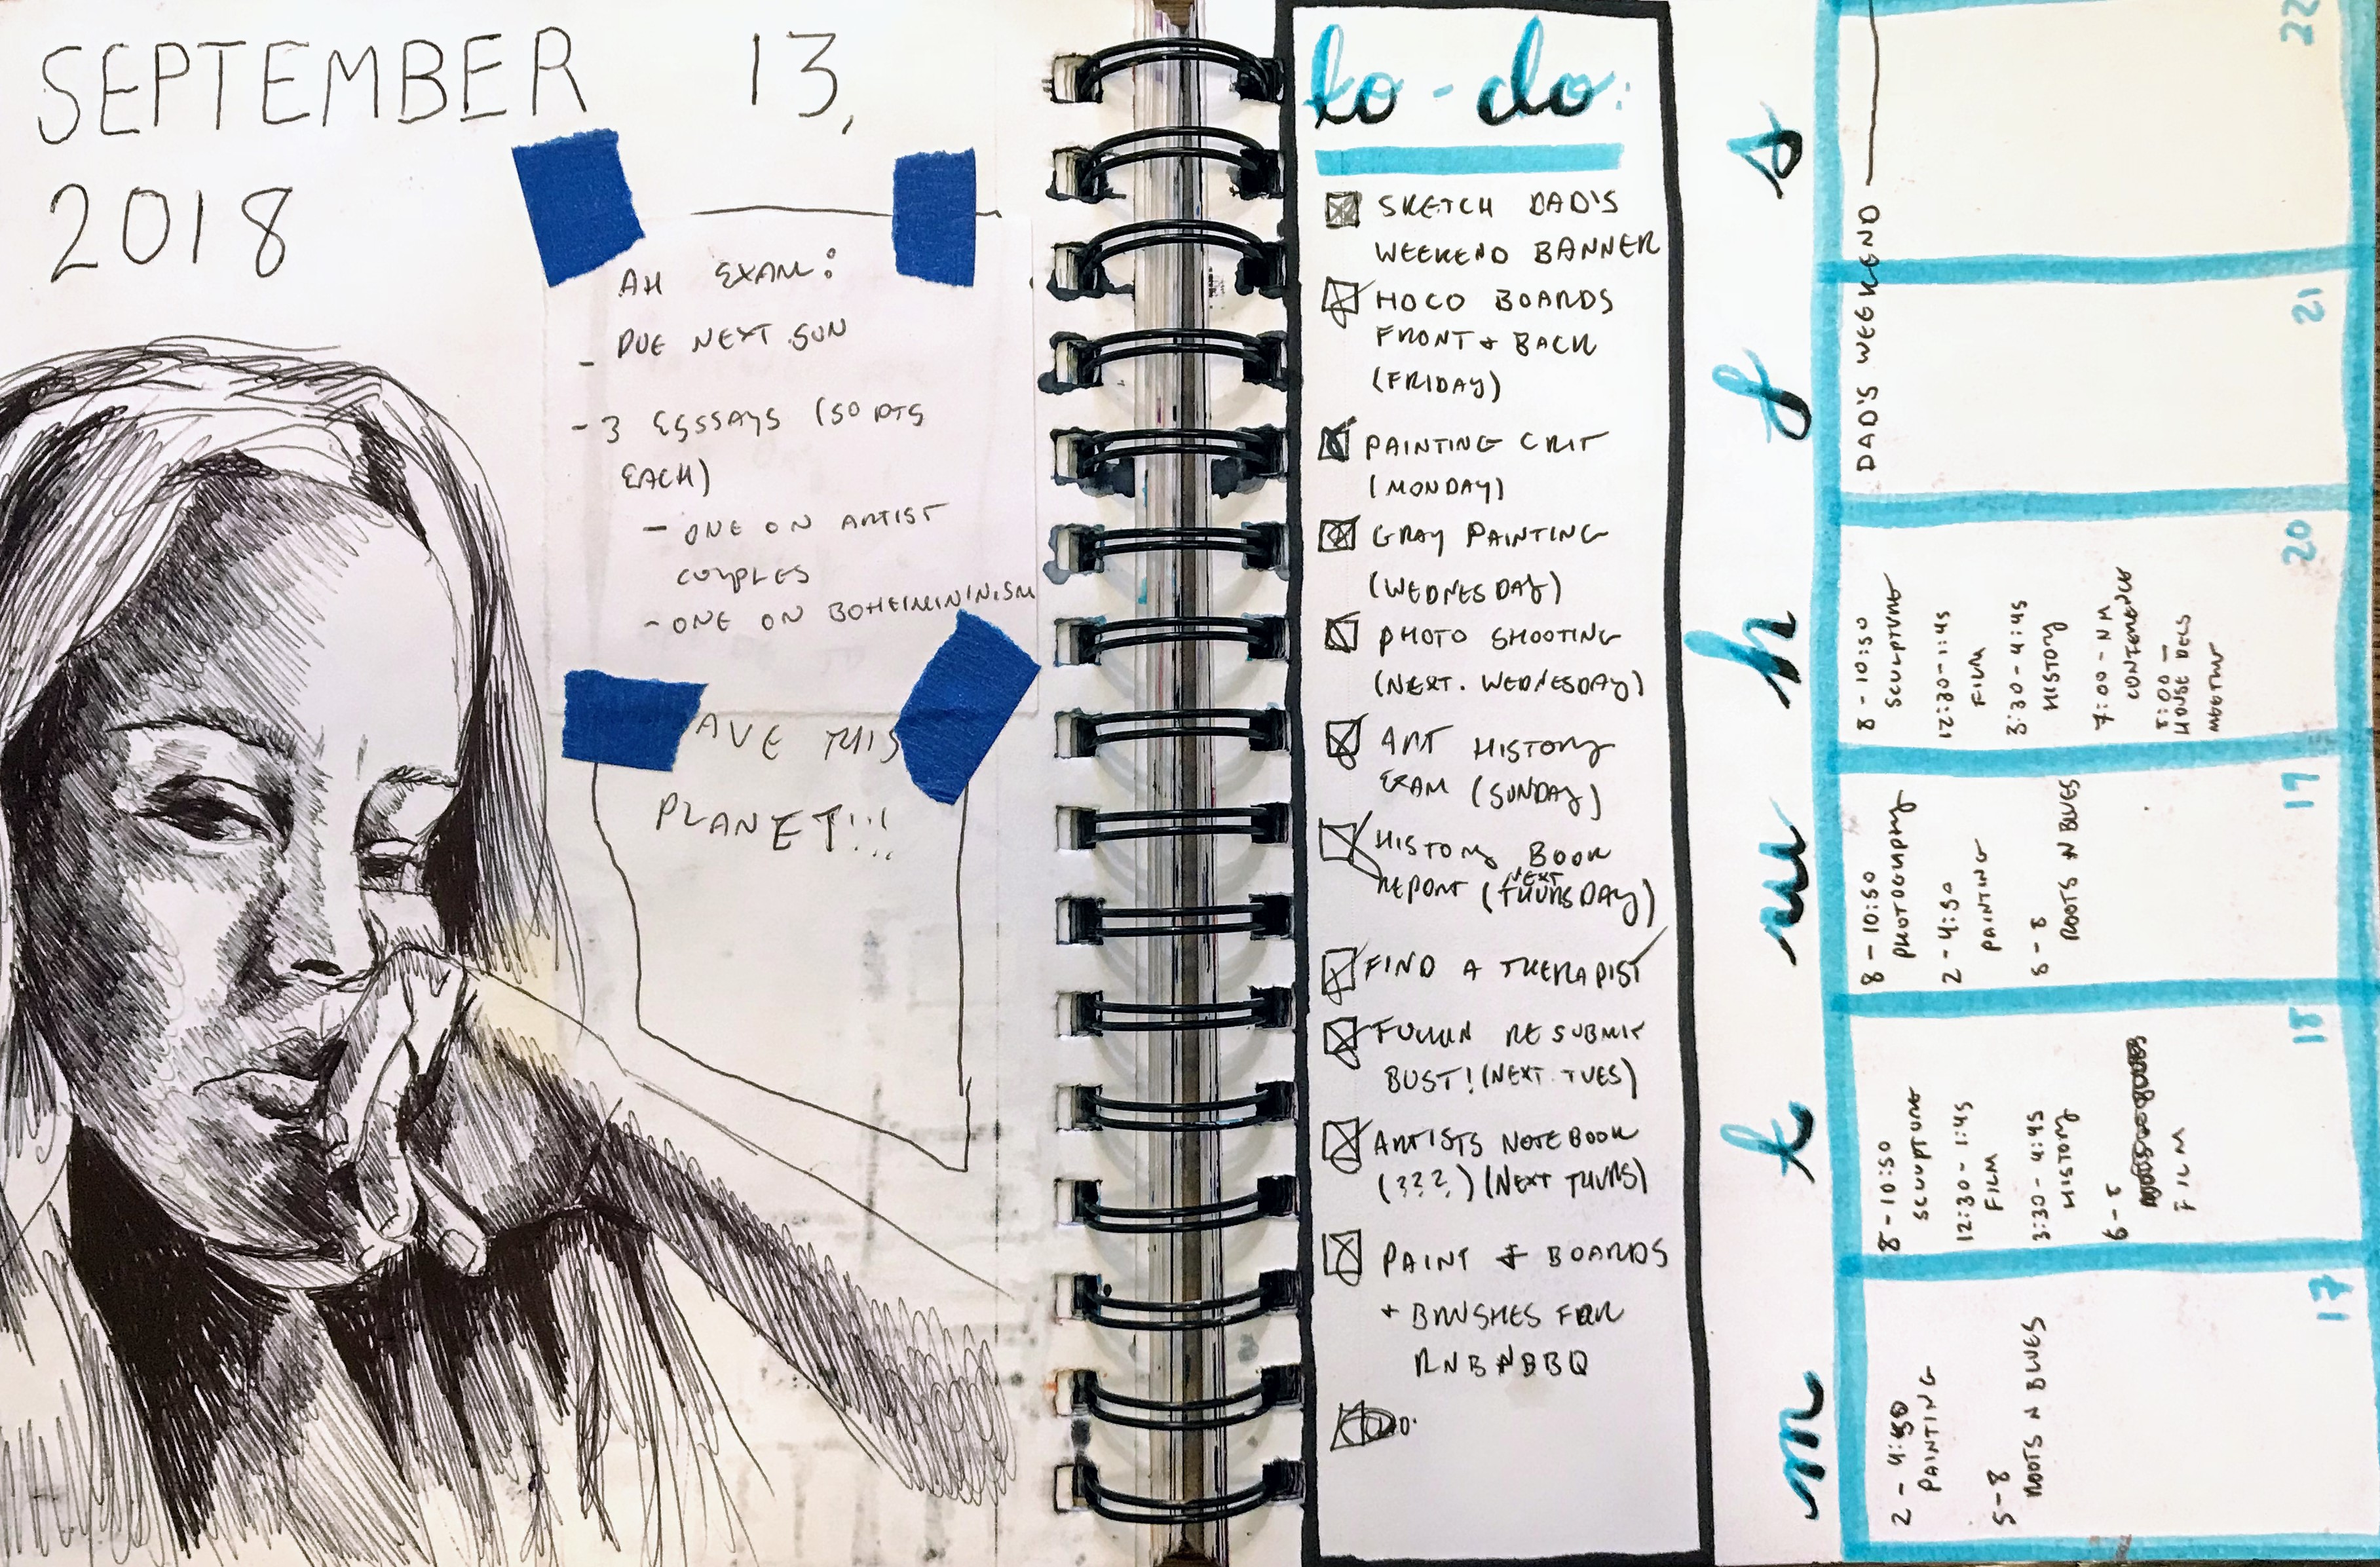 SEPTEMBER 13,
2018
AH EXAM:
- DUE NEXT SUN
- 3 ESSSAYS (50 PTS
EACH)
- ONE ON ARTIST
COUPLES
- ONE ON BOHEIMININISM
AVE THIS
PLANET!!!
to-do:
SKETCH DAD'S
WEEKEND BANNER
HOCO BOARDS
FRONT + BACK
(FRIDAY)
PAINTING CRIT
(MONDAY)
GRAY PAINTING
(WEDNESDAY)
PHOTO SHOOTING
(NEXT. WEDNESDAY)
ART HISTORY
EXAM (SUNDAY)
HISTORY BOOK
REPORT (NEXT THURSDAY)
FIND A THERAPIST
RESUBMIT
BUST! (NEXT TUES)
ARTISTS NOTEBOOK
(???) (NEXT THURS)
PAINT + BOARDS
+ BRUSHES FOR
RNB N BBQ
m
17
2 - 4:50
PAINTING
5-8
ROOTS N BLUES
t
18
8 - 10:50
SCULPTURE
12:30 - 1:45
FILM
3:30 - 4:45
HISTORY
6 - 8
FILM
w
19
8 - 10:50
PHOTOGRAPHY
2 - 4:50
PAINTING
5 - 8
ROOTS N BLUES
h
20
8 - 10:50
SCULPTURE
12:30 - 1:45
FILM
3:30 - 4:45
HISTORY
7:00 - NA
CONFERENCE
8:00 -
HOUSE DECS
MEETING
f
21
DAD'S WEEKEND
s
22